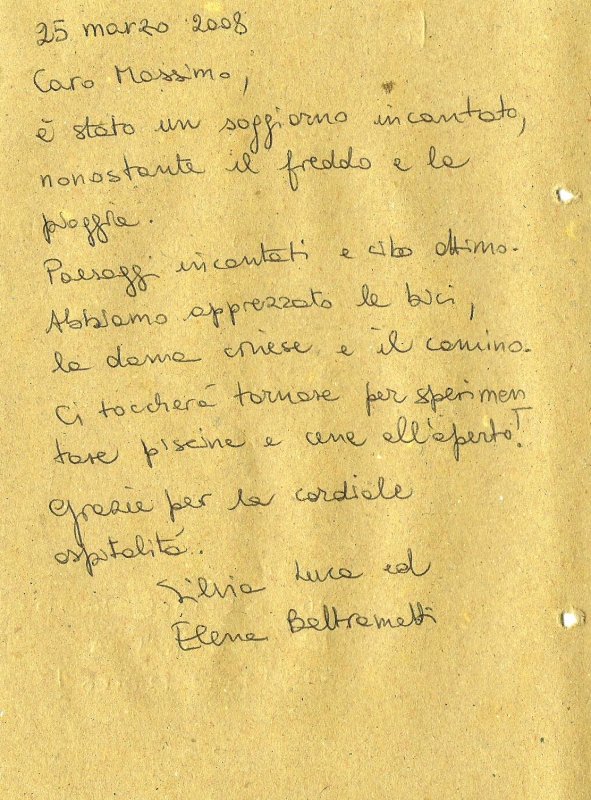 25 marzo 2008
Caro Massimo,
è stato un soggiorno incantato,
nonostante il freddo e la
pioggia.
Paesaggi incantati e cibo ottimo.
Abbiamo apprezzato le bici,
la dama cinese e il camino.
Ci toccherà tornare per sperimen
tare piscine e cene all'aperto!
Grazie per la cordiale
ospitalità.
Silvia Luca ed
Elena Beltrametti